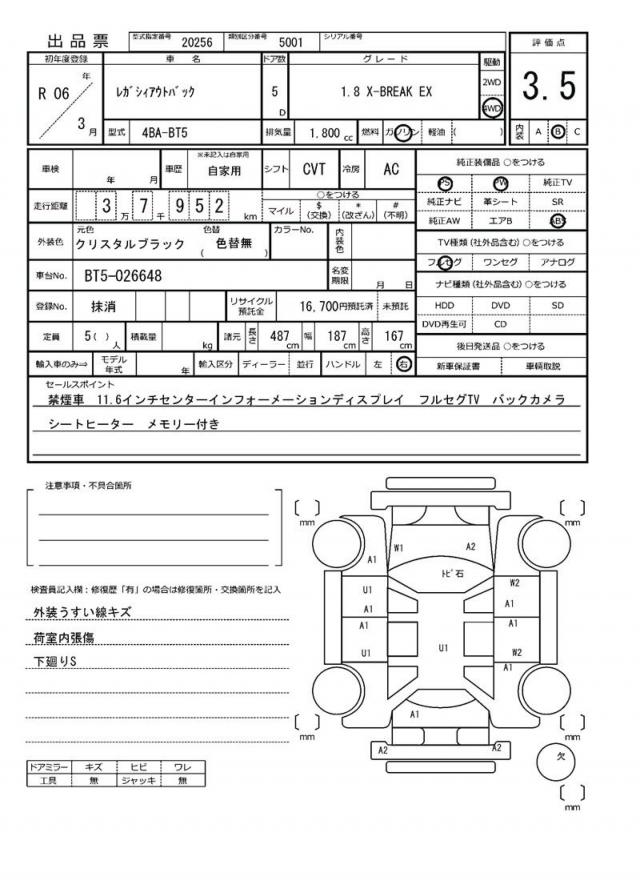 出品票
型式指定番号 20256 類別区分番号 5001 シリアル番号
初年度登録 車名 ドア数 グレード 駆動 評価点
R 06 年 3 月
ﾚｶﾞｼｨｱｳﾄﾊﾞｯｸ 5 D 1.8 X-BREAK EX 2WD 4WD 3.5
型式 4BA-BT5 排気量 1,800 cc 燃料 ガソリン 軽油 ( ) 内装 A B C
車検 年 月 車歴 ※未記入は自家用 自家用 シフト CVT 冷房 AC
純正装備品 ○をつける
PS PW 純正TV
純正ナビ 革シート SR
純正AW エアB ABS
走行距離 3 万 7 千 9 5 2 km
○をつける
マイル $ (交換) * (改ざん) # (不明)
TV種類(社外品含む) ○をつける
フルセグ ワンセグ アナログ
外装色 元色 クリスタルブラック 色替 ( 色替無 ) カラーNo. 内装色
車台No. BT5-026648 名変期限 月 日
ナビ種類(社外品含む) ○をつける
HDD DVD SD
DVD再生可 CD
登録No. 抹消 リサイクル預託金 16,700円預託済 未預託
定員 5( ) 人 積載量 kg 諸元 長さ 487 cm 幅 187 cm 高さ 167 cm
後日発送品 ○をつける
新車保証書 車輌取説
輸入車のみ⇒ モデル年式 年 輸入区分 ディーラー 並行 ハンドル 左 右
セールスポイント
禁煙車 11.6インチセンターインフォーメーションディスプレイ フルセグTV バックカメラ
シートヒーター メモリー付き
注意事項・不具合箇所
検査員記入欄:修復歴「有」の場合は修復箇所・交換箇所を記入
外装うすい線キズ
荷室内張傷
下廻りS
ドアミラー キズ ヒビ ワレ
工具 無 ジャッキ 無
[ ] mm [ ] mm
W1 A2
A1
ﾄﾋﾞ石
U1 W2
A1 A1
A1 A1
U1 U1 W2
A1
A1
[ ] mm [ ] mm
A2 A2
欠
[ ] mm